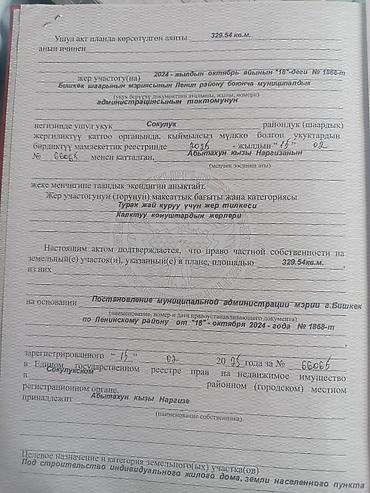 Ушул акт планда көрсөтүлгөн аянты 329.54 кв.м.
анын ичинен
жер участогу(на) 2024 - жылдын октябрь айынын "18"-деги № 1868-т
Бишкек шаарынын мэриясынын Ленин району боюнча муниципалдык
(укук берүүчү документтин аталышы, жылы, номери)
администрациясынын токтомунун
негизинде ушул укук Сокулук райондук (шаардык)
жергиликтүү каттоо органында, кыймылсыз мүлккө болгон укуктардын
бирдиктүү мамлекеттик реестринде 2025 - жылдын " 13 " 02
№ 66065 менен катталган. Абытахун кызы Наргизанын
(менчик ээсинин аты)
жеке менчигине таандык экендигин аныктайт.
Жер участогунун (торунун) максаттык багыты жана категориясы
Турак жай куруу үчүн жер тилкеси
Калктуу конуштардын жерлери
Настоящим актом подтверждается, что право частной собственности на
земельный(е) участок(и), указанный(е) в плане, площадью 329.54кв.м.
из них
на основании Постановление муниципальной администрации мэрии г.Бишкек
(наименование, номер и дата правоустанавливающего документа)
по Ленинскому району от "18" - октября 2024 - года № 1868-т
зарегистрированного " 13 " 02 20 25 года за № 66065
в Едином государственном реестре прав на недвижимое имущество
в Сокулукском районном (городском) местном
регистрационном органе,
принадлежит Абытахун кызы Наргизе
(наименование собственника)
Целевое назначение и категория земельного(ых) участка(ов)
Под строительство индивидуального жилого дома, земли населенного пункта